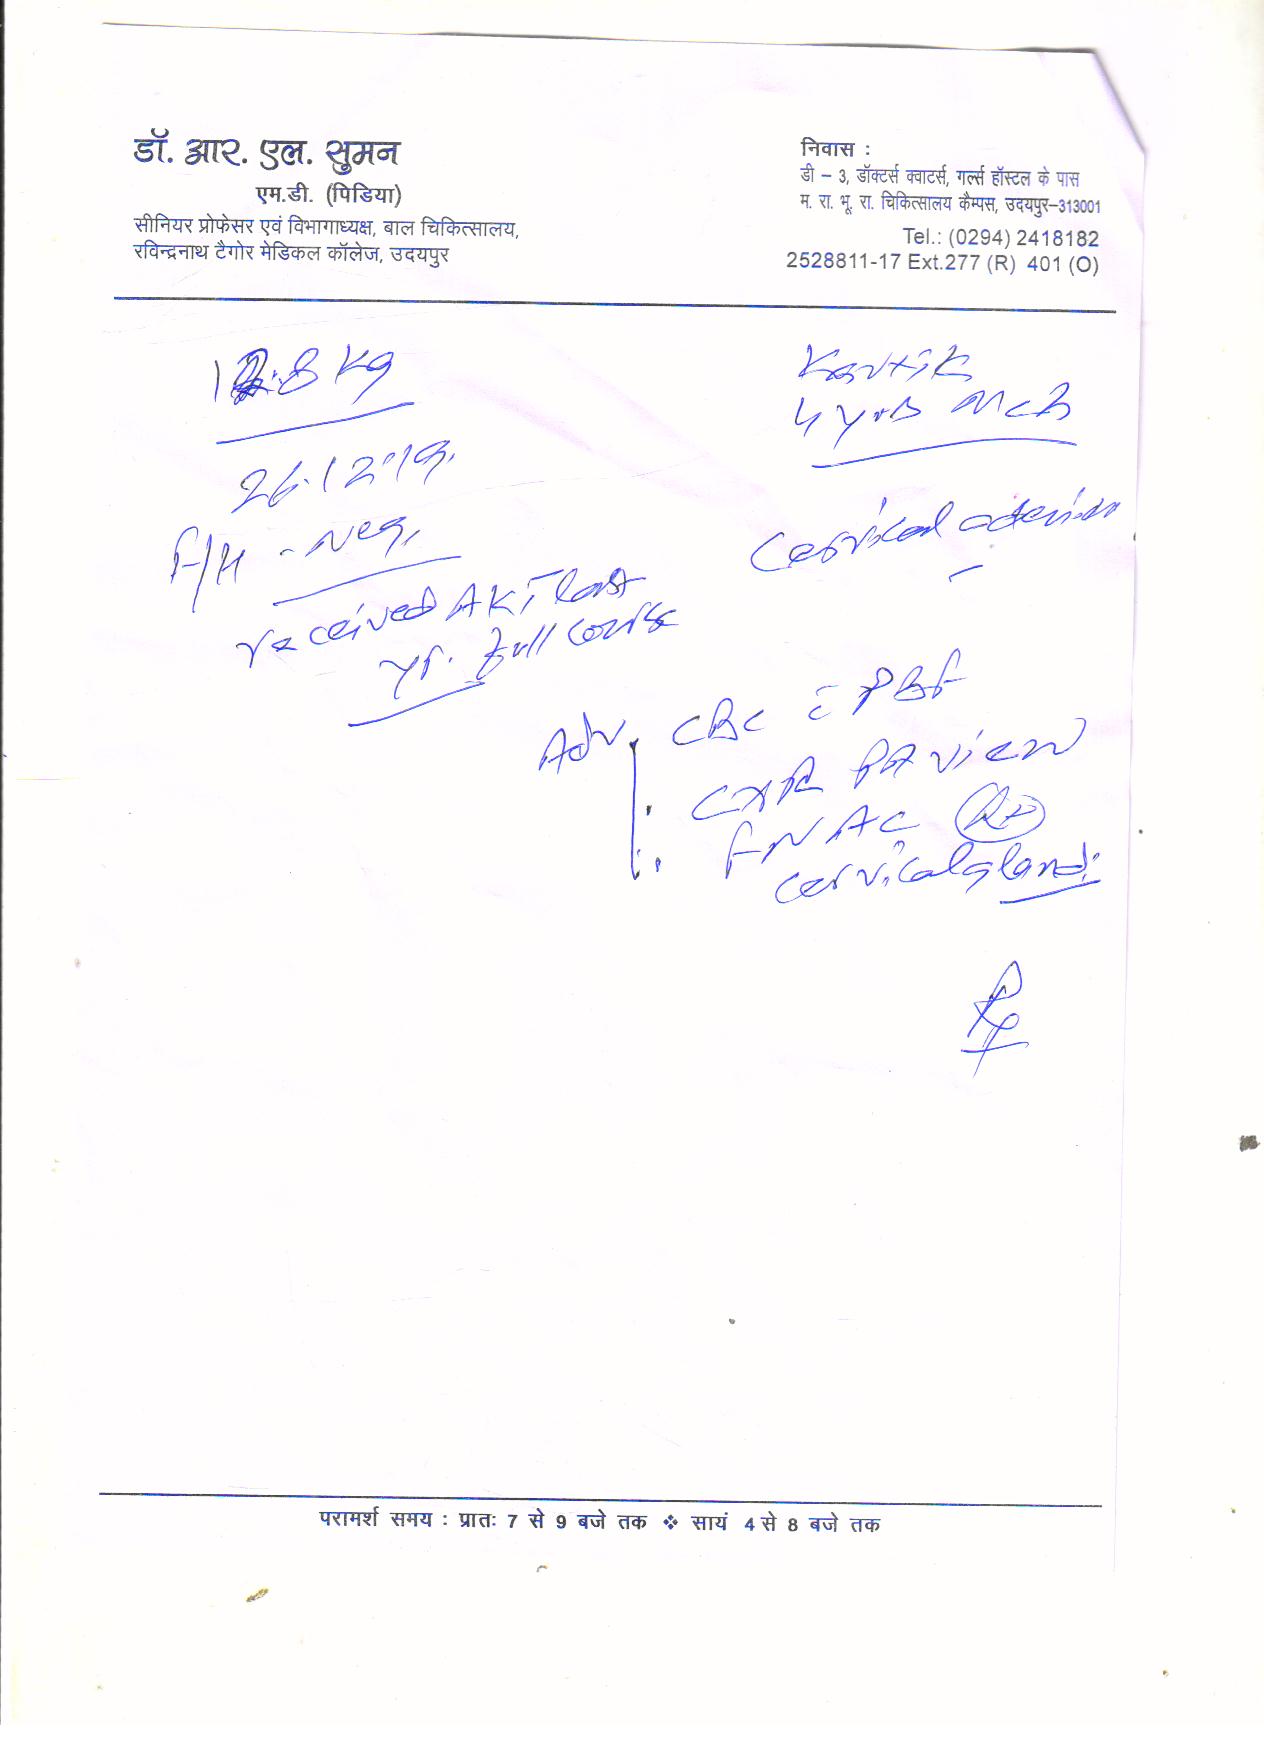 डॉ. आर. एल. सुमन
एम.डी. (पिडिया)
सीनियर प्रोफेसर एवं विभागाध्यक्ष, बाल चिकित्सालय,
रविन्द्रनाथ टैगोर मेडिकल कॉलेज, उदयपुर
निवास :
डी – 3, डॉक्टर्स क्वाटर्स, गर्ल्स हॉस्टल के पास
म. रा. भू. रा. चिकित्सालय कैम्पस, उदयपुर–313001
Tel.: (0294) 2418182
2528811-17 Ext.277 (R) 401 (O)
12.8 Kg
26.12.19.
F/H - Neg.
received AKT last
yr. full course
Kartik
4 yrs Mch
Cervical
Adv. CBC c̄ PBF
: CXR PA view
: FNAC Rt
cervical gland.
परामर्श समय : प्रातः 7 से 9 बजे तक ❖ सायं 4 से 8 बजे तक